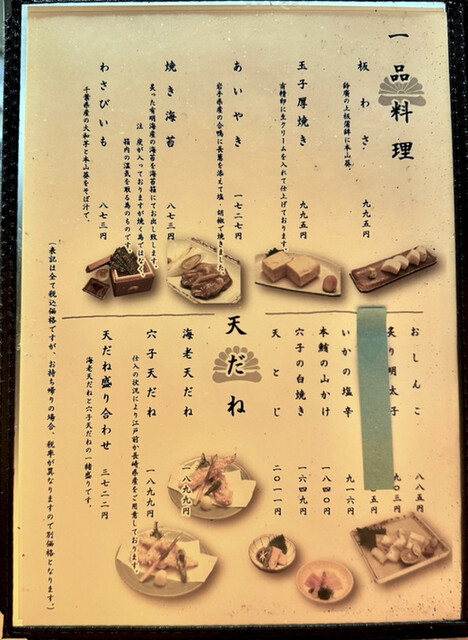 一品料理
板わさ 九九五円
鈴廣の上板蒲鉾に本山葵。
玉子厚焼き 九九五円
有精卵に生クリームを入れて仕上げております。
あいやき 一七二七円
岩手県産の合鴨に長葱を添えて塩・胡椒で焼きました。
焼き海苔 八七三円
炙った有明海産の海苔を海苔箱にてお出し致します。
注 炭が入っておりますが焼く為ではなく、
箱内の湿気を取る為のものです。
わさびいも 八七三円
千葉県産の大和芋と本山葵をそば汁で。
おしんこ 八八五円
炙り明太子 九〇三円
五円
いかの塩辛 九一六円
本鮪の山かけ 一八四〇円
穴子の白焼き 一六四九円
天とじ 二〇一一円
天だね
海老天だね 一八九九円
穴子天だね 一八九九円
仕入の状況により江戸前か長崎県産をご用意しております。
天だね盛り合わせ 三七二二円
海老天だねと穴子天だねの一緒盛りです。
(表記は全て税込価格ですが、お持ち帰りの場合、税率が異なりますので別価格となります。)